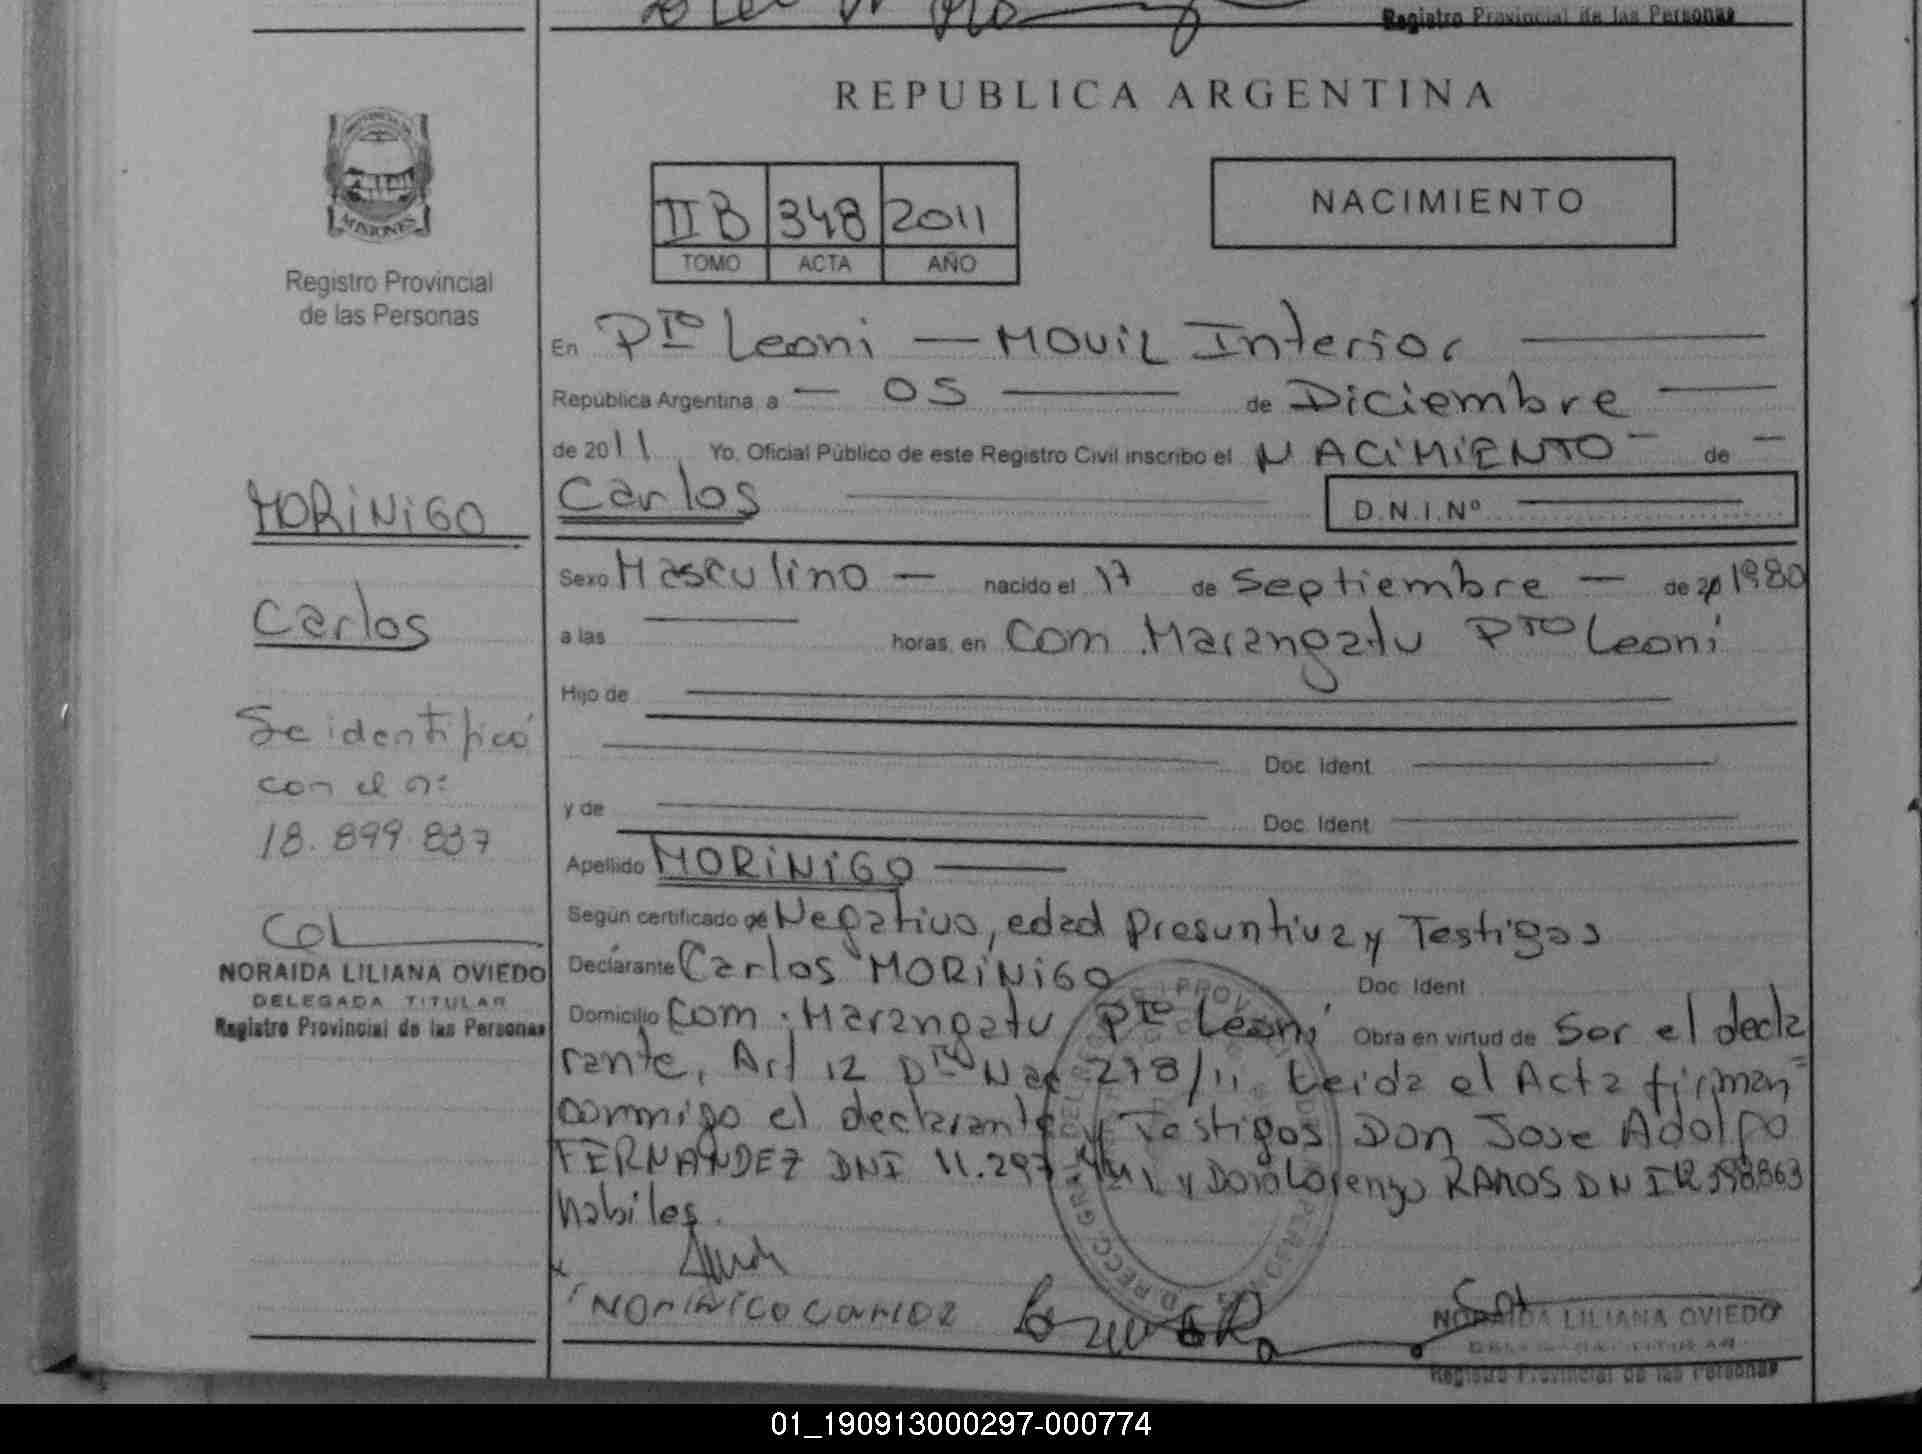 Registro Provincial de las Personas
REPUBLICA ARGENTINA
MISIONES
Registro Provincial
de las Personas
II B 348 2011
TOMO ACTA AÑO
NACIMIENTO
En Pto Leoni — MOVIL Interior
República Argentina, a — 05 — de Diciembre —
de 2011 Yo, Oficial Público de este Registro Civil inscribo el NACIMIENTO — de —
MORINIGO
Carlos
D.N.I.Nº
Carlos
Sexo Masculino — nacido el 17 de Septiembre — de 20 1980
a las — horas, en Com. Marangatu Pto Leoni
Hijo de
Doc. Ident.
y de
Doc. Ident.
Se identificó
con el nº
18.899.837
Apellido MORINIGO —
Según certificado de Negativo, edad Presuntiva y Testigos
Declarante Carlos MORINIGO Doc. Ident.
Domicilio Com. Marangatu Pto Leoni Obra en virtud de Ser el decla
rante, Art 12 Dto Nac 278/11. Leida el Acta firman
conmigo el declarante y Testigos Don Jose Adolfo
FERNANDEZ DNI 11.297. y Don Lorenzo RAMOS DNI 12.398.863
habiles.
NORAIDA LILIANA OVIEDO
DELEGADA TITULAR
Registro Provincial de las Personas
NORAIDA LILIANA OVIEDO
DELEGADA TITULAR
Registro Provincial de las Personas
01_190913000297-000774